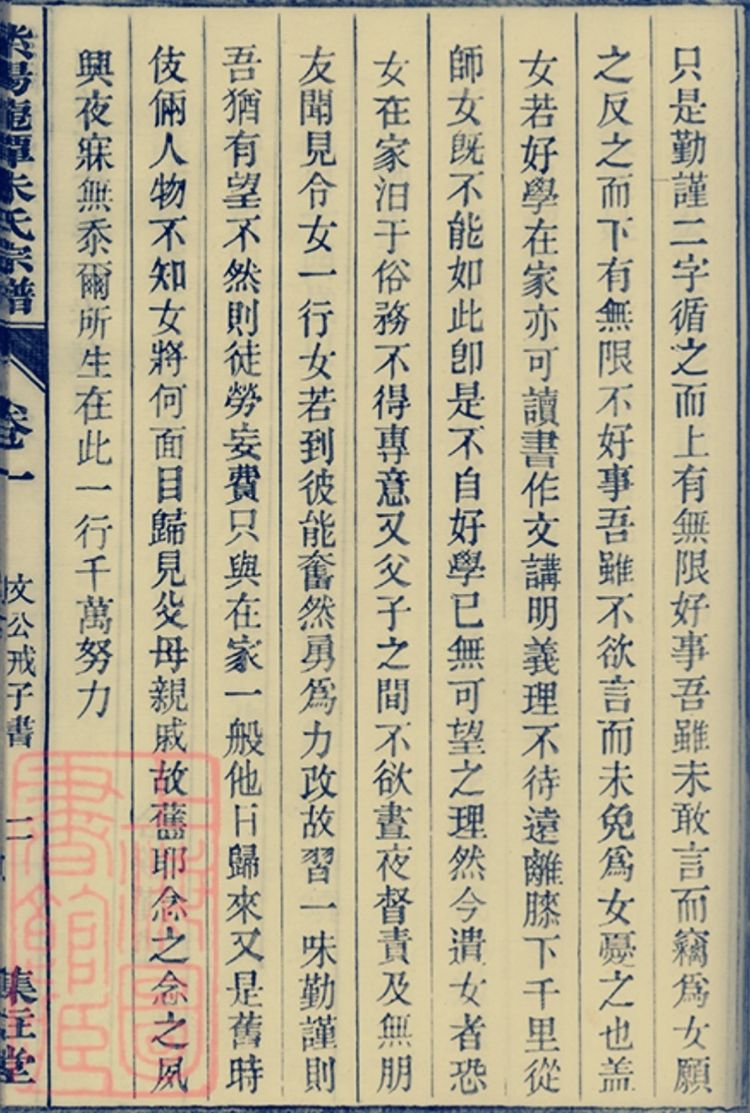 只是勤謹二字循之而上有無限好事吾雖未敢言而竊爲女願
之反之而下有無限不好事吾雖不欲言而未免爲女憂之也盖
女若好學在家亦可讀書作文講明義理不待遠離膝下千里從
師女旣不能如此卽是不自好學已無可望之理然今遣女者恐
女在家汩于俗務不得專意又父子之間不欲晝夜督責及無朋
友聞見令女一行女若到彼能奮然勇爲力改故習一味勤謹則
吾猶有望不然則徒勞妄費只與在家一般他日歸來又是舊時
伎倆人物不知女將何面目歸見父母親戚故舊耶念之念之夙
興夜寐無忝爾所生在此一行千萬努力
紫陽龍潭朱氏宗譜
卷一
文公戒子書
二
集註堂